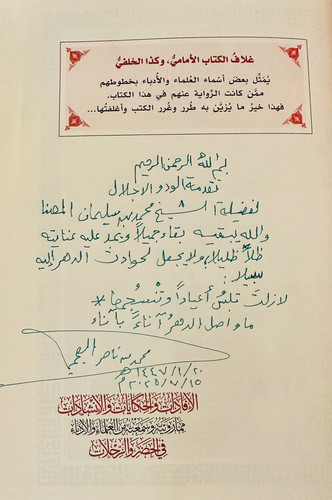 غلافُ الكتاب الأماميُّ، وكَذا الخلفيُّ
يُمَثِّل بعضَ أسْماء العُلماء والأُدباء بخطوطهم
ممَّن كانت الرِّواية عنهم في هذا الكتاب.
فهذا خيرُ ما يُزَيَّن به طُرر وغُرر الكتب وأغلفتُها...
بسم الله الرحمن الرحيم
تقدمة الود والإجلال
لفضيلة الشيخ محمد بن سليمان المهنا
والله يبقيه بقاءً جميلاً ويمد عليه عنايته
ظلاً ظليلاً، ولا يجعل لحوادث الدهر إليه
سبيلا:
لا زلتَ تلبسُ أعياداً وتنسجها *
ما واصل الدهرُ آناءً بآناء
محمد بن ناصر العجمي
١٤٤٧/١/٢٠هـ
٢٠٢٥/٧/١٥م
الإفادات والحكايات والإنشادات
مما رويته وسمعته من العلماء والأدباء
في الحضر والرحلات